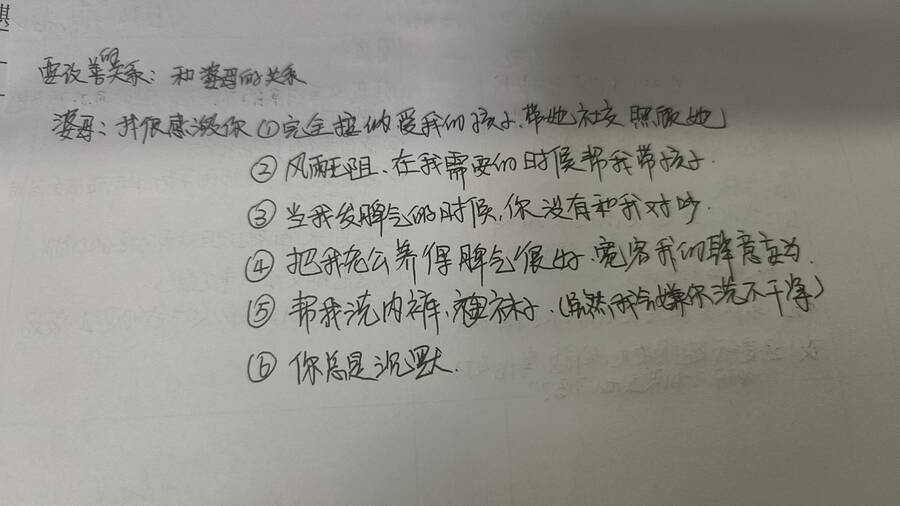 要改善的关系：和婆母的关系
婆母：我很感激你 ①完全接纳爱我的孩子、带她社交 照顾她
②风雨无阻、在我需要的时候帮我带孩子.
③当我发脾气的时候，你没有和我对吵.
④把我老公养得脾气很好.宽容我的肆意妄为.
⑤帮我洗内裤、袜子.（虽然我会嫌你洗不干净）
⑥你总是沉默.